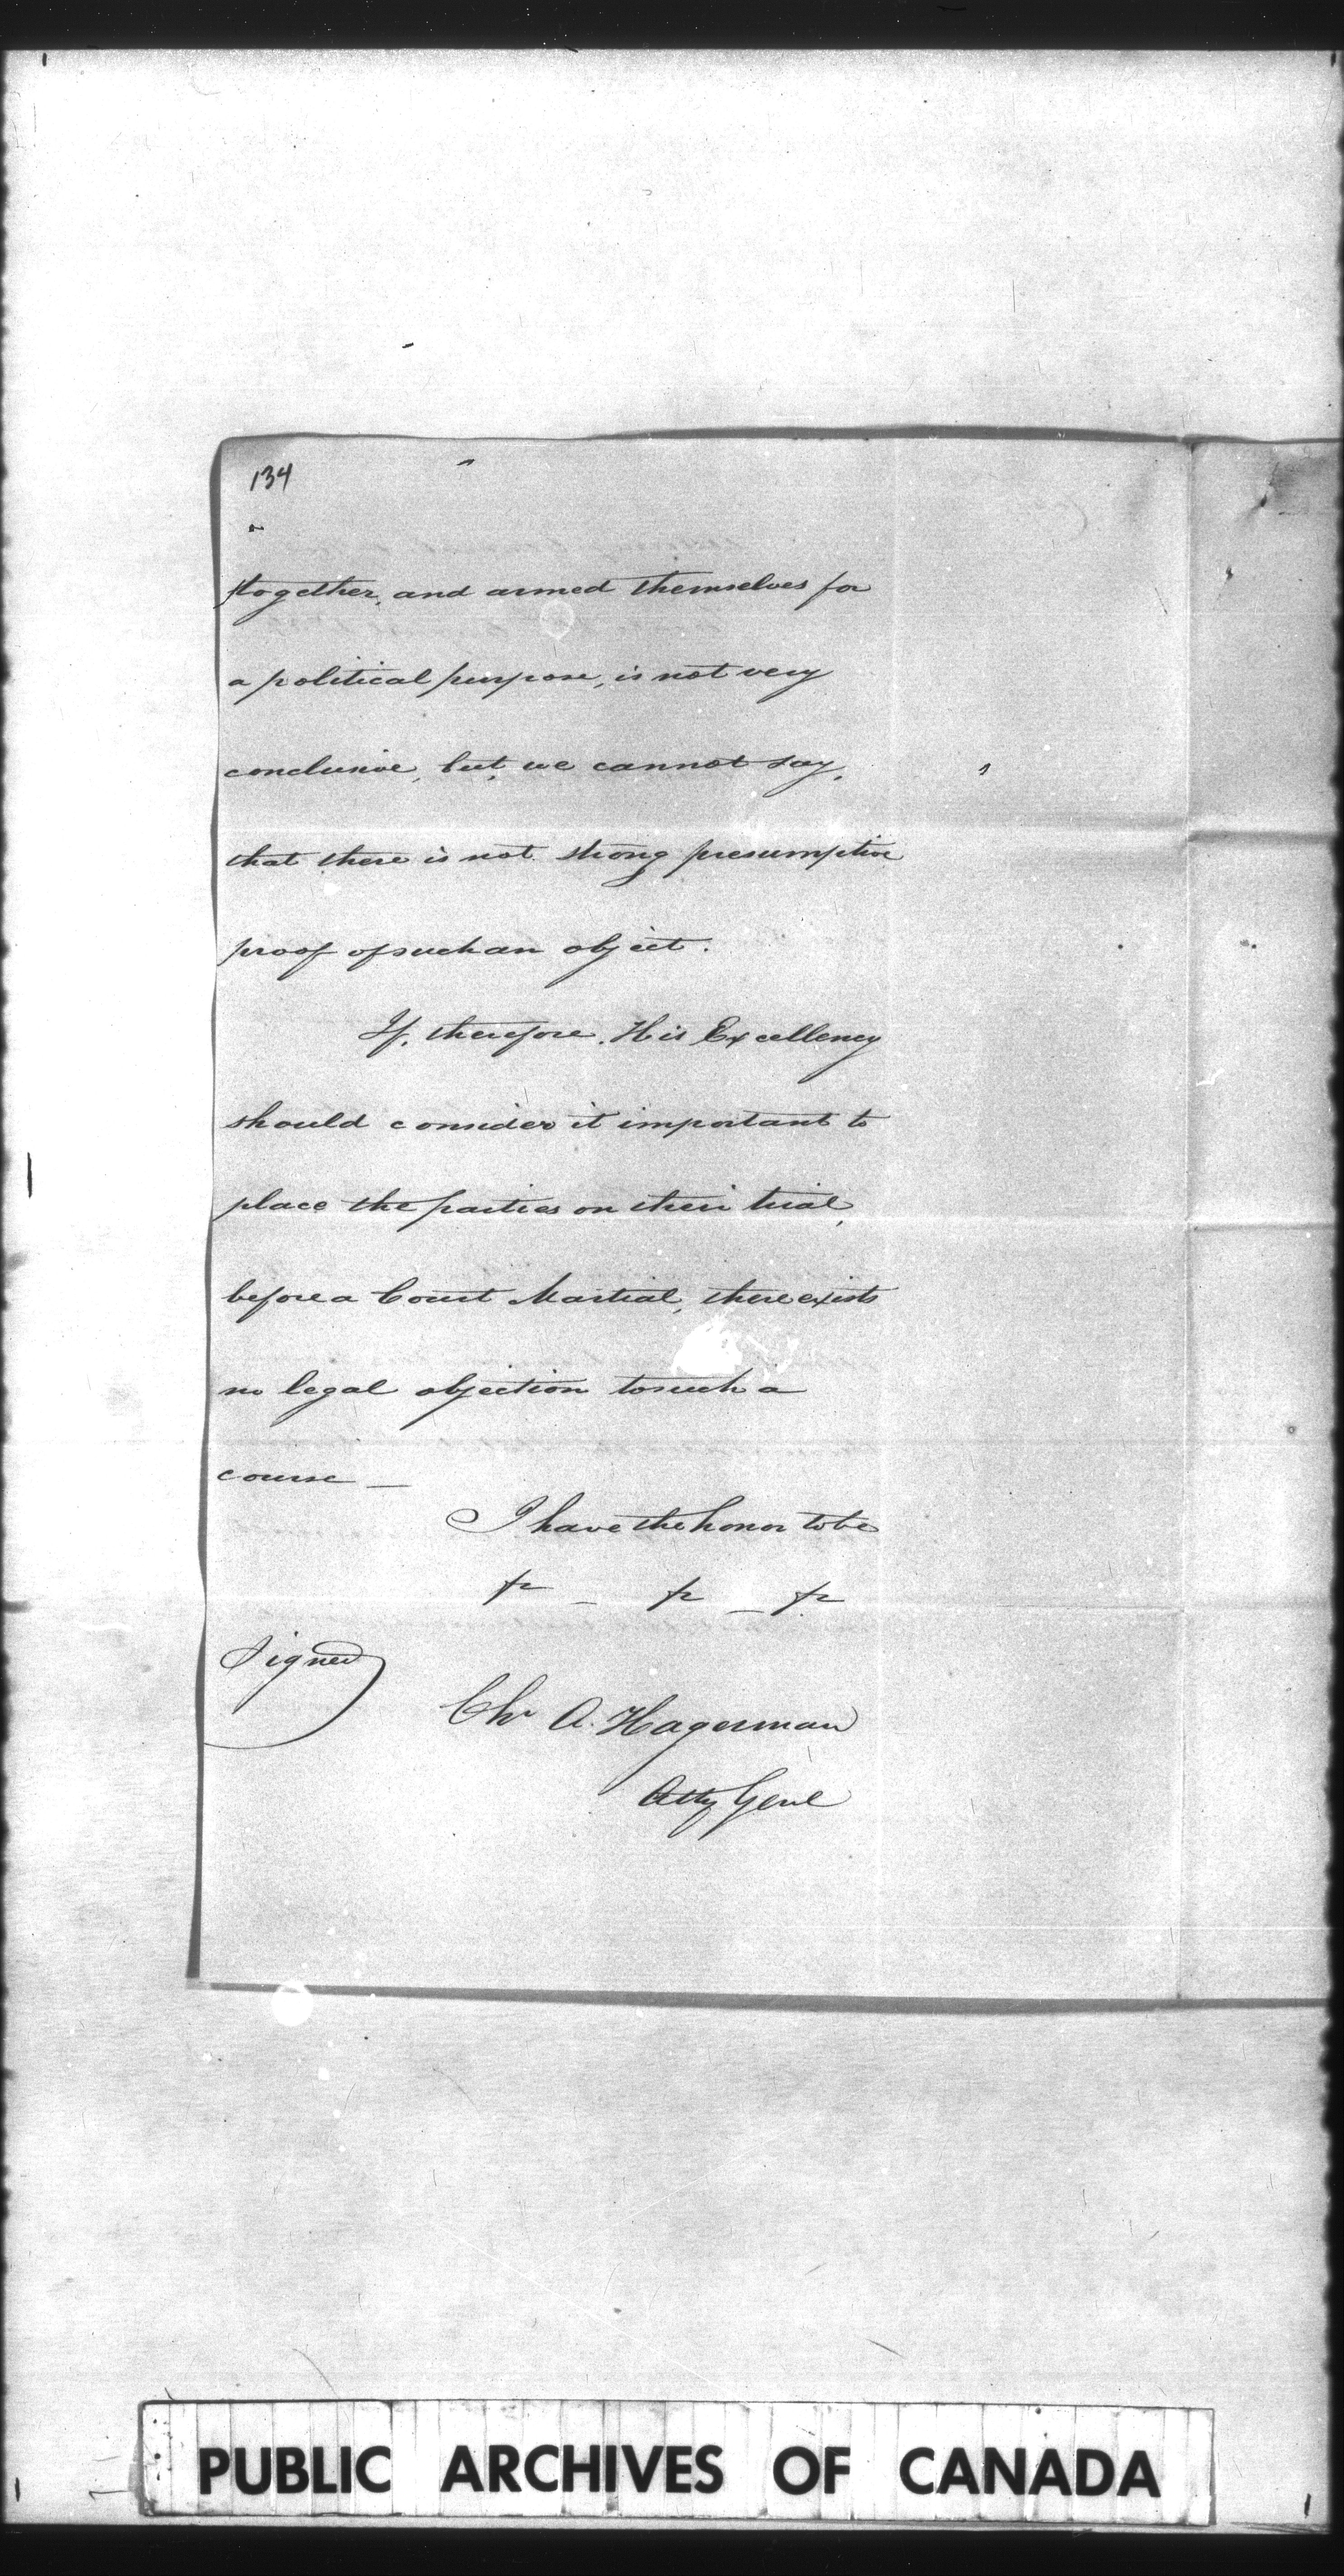 134
together, and armed themselves for
a political purpose, is not very
conclusive, but, we cannot say,
that there is not strong presumptive
proof of such an object.
If, therefore, His Excellency
should consider it important to
place the parties on their trial,
before a Court Martial, there exists
no legal objection to such a
course —
I have the honor to be
&c — &c — &c
Signed
Chr A. Hagerman
Atty Genl
PUBLIC ARCHIVES OF CANADA